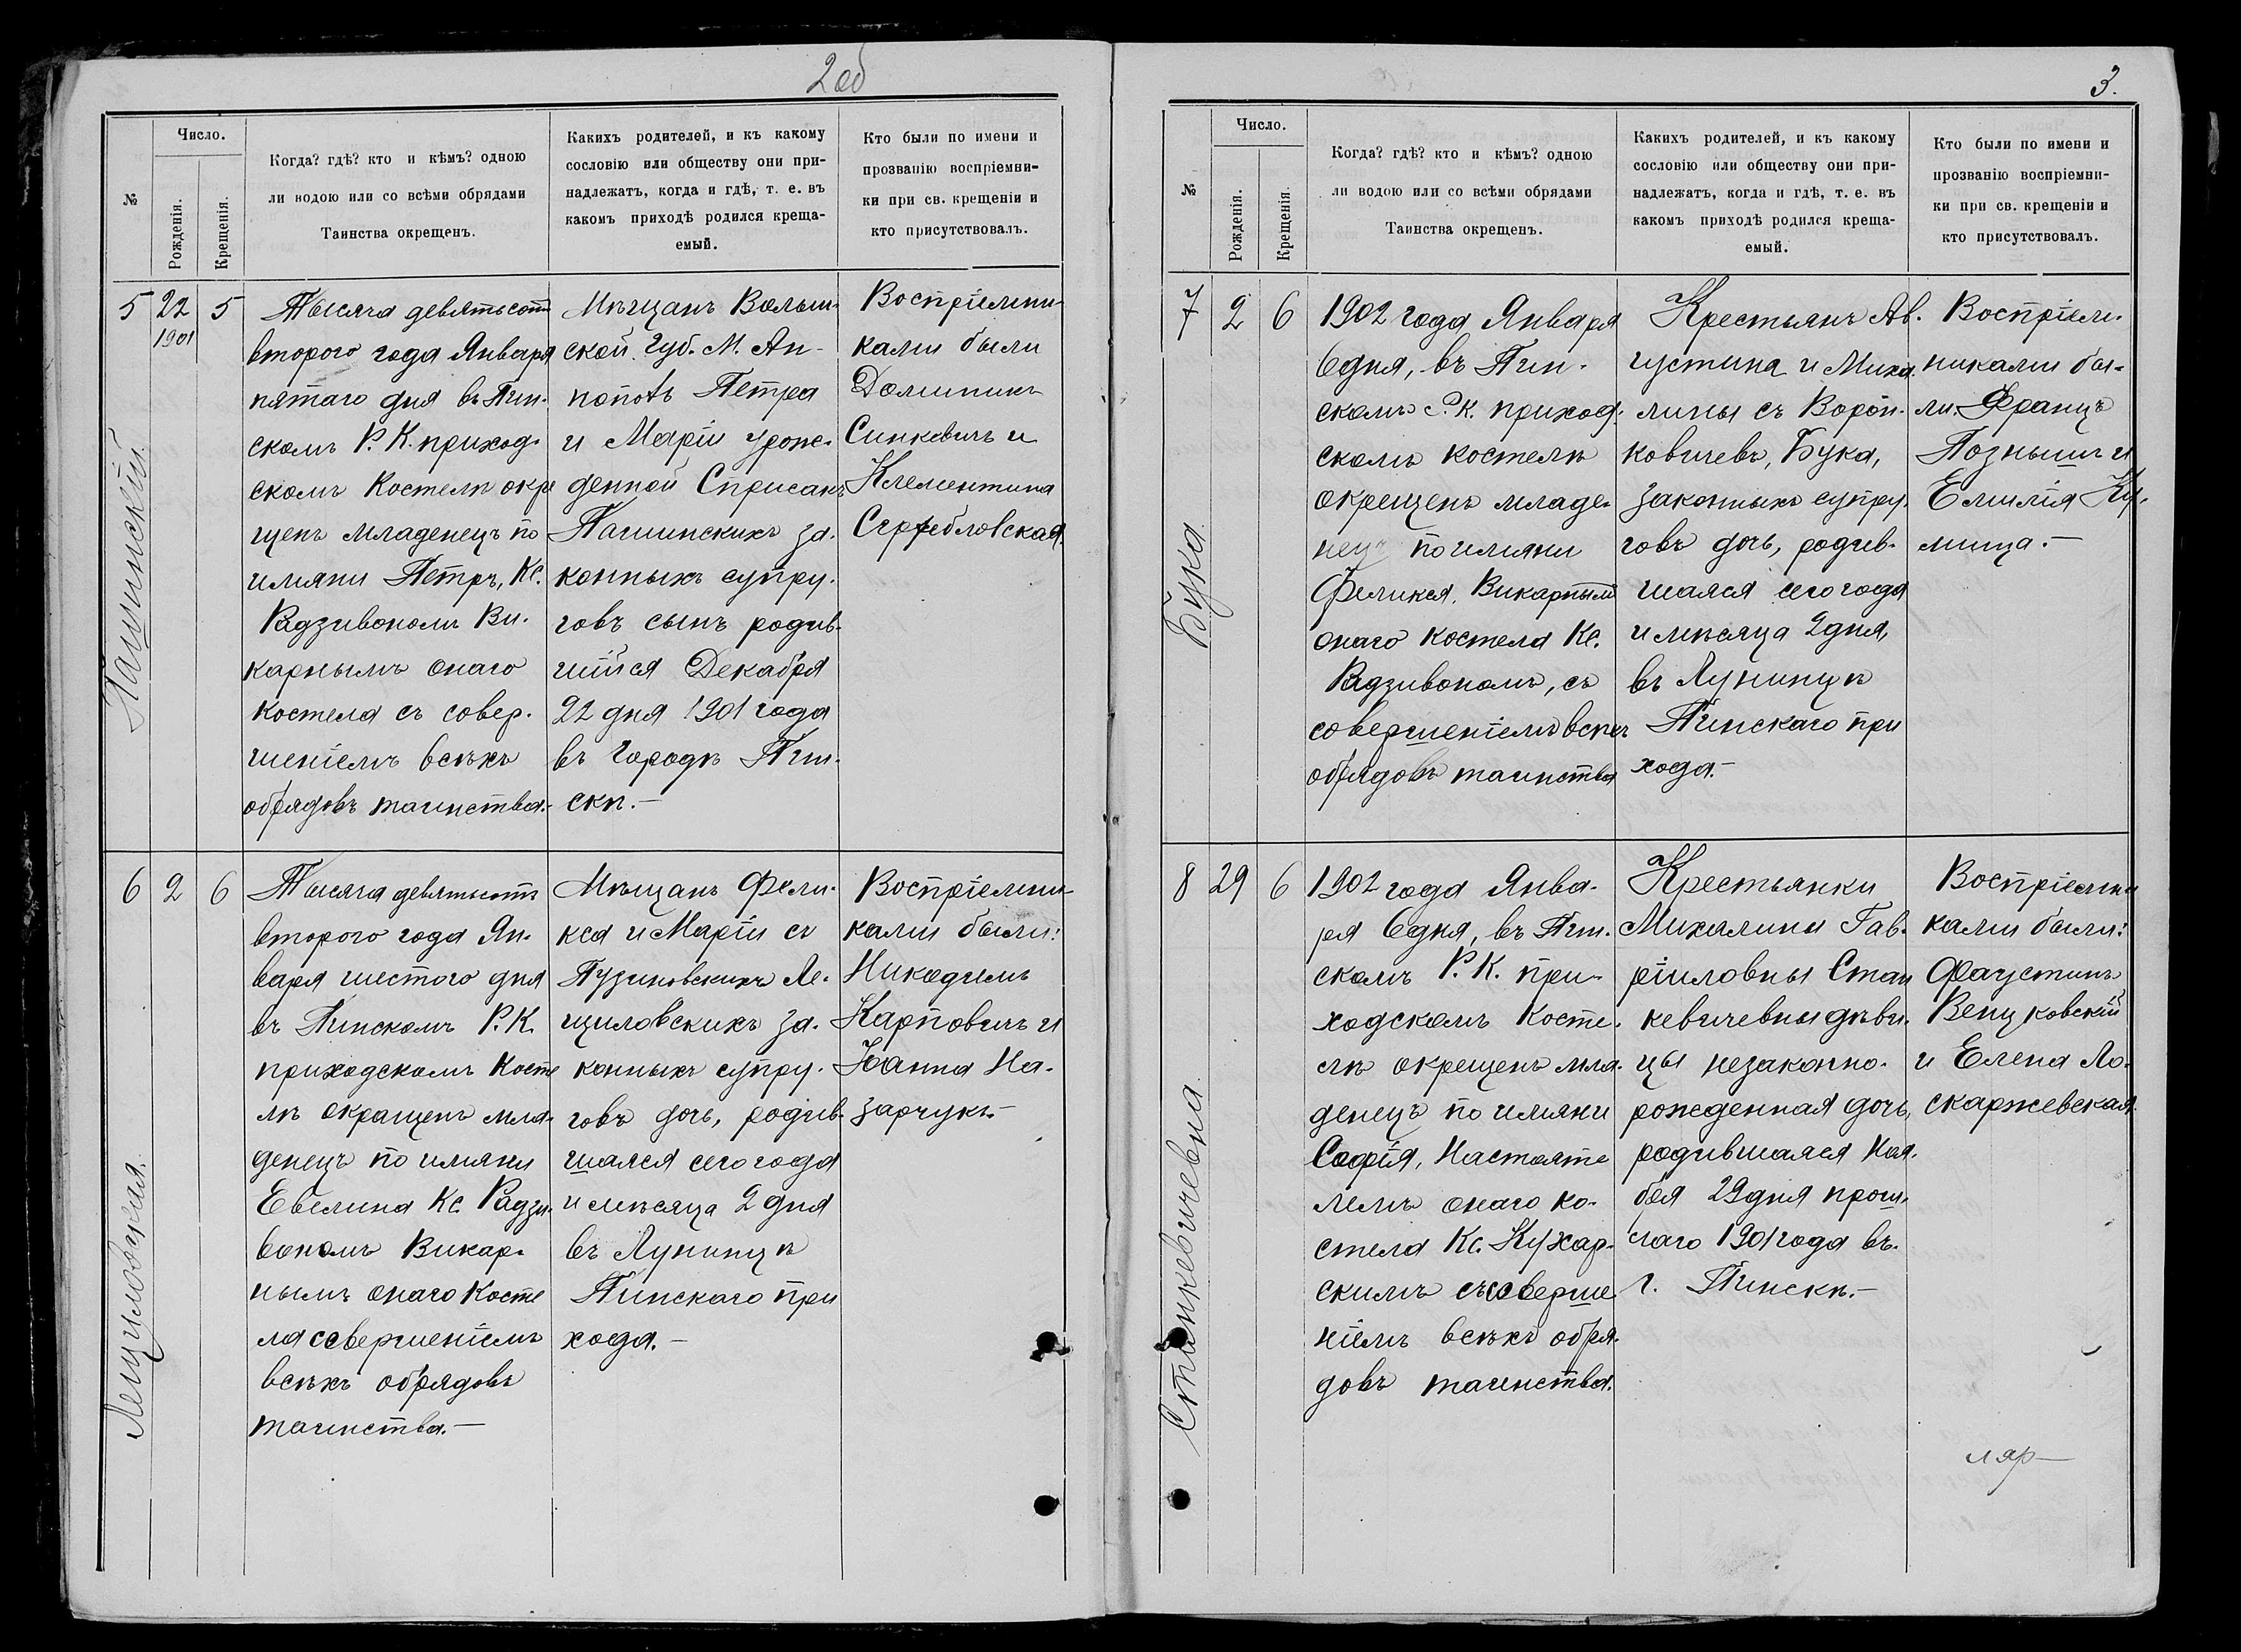 2 об
№
Число.
Рожденія.
Крещенія.
Когда? гдѣ? кто и кѣмъ? одною
ли водою или со всѣми обрядами
Таинства окрещенъ.
Какихъ родителей, и къ какому
сословію или обществу они при-
надлежатъ, когда и гдѣ, т. е. въ
какомъ приходѣ родился креща-
емый.
Кто были по имени и
прозванію воспріемни-
ки при св. крещеніи и
кто присутствовалъ.
Пашинскій.
5
22
1901
5
Тысяча девятьсотъ
второго года Января
пятаго дня въ Пин-
скомъ Р. К. приход-
скомъ Костелѣ окре
щенъ младенецъ по
имяни Петръ, Кс.
Радзивономъ Ви-
карнымъ онаго
костела съ совер-
шеніемъ всѣхъ
обрядовъ таинства.-
Мѣщанъ Волын-
ской Губ. М. Ан-
нополь Петра
и Маріи урож-
денной Списакъ
Пашинскихъ за-
конныхъ супру-
говъ сынъ родив-
шійся Декабря
22 дня 1901 года
въ Городѣ Пин-
скѣ.-
Воспріемни-
ками были
Доминикъ
Синкевичъ и
Клементина
Серебловская.
Лещиловская.
6
2
6
Тысяча девятьсотъ
второго года Ян-
варя шестого дня
въ Пинскомъ Р. К.
приходскомъ Косте
лѣ окращенъ мла-
денецъ по имяни
Евелина Кс. Радзи-
вономъ Викар-
нымъ онаго Косте
ла совершеніемъ
всѣхъ обрядовъ
таинства.-
Мѣщанъ Фели-
кса и Маріи съ
Пузиновскихъ Ле-
щиловскихъ за-
конныхъ супру-
говъ дочь, родив-
шаяся сего года
и мѣсяца 2 дня
въ Лунинцѣ
Пинскаго при
хода.-
Воспріемни-
ками были:
Никодимъ
Карповичъ и
Іоанна На-
зарчукъ.-
3.
№
Число.
Рожденія.
Крещенія.
Когда? гдѣ? кто и кѣмъ? одною
ли водою или со всѣми обрядами
Таинства окрещенъ.
Какихъ родителей, и къ какому
сословію или обществу они при-
надлежатъ, когда и гдѣ, т. е. въ
какомъ приходѣ родился креща-
емый.
Кто были по имени и
прозванію воспріемни-
ки при св. крещеніи и
кто присутствовалъ.
Бука.
7
2
6
1902 года Января
6 дня, въ Пин-
скомъ Р. К. приход-
скомъ костелѣ
окрещенъ младе-
нецъ по имяни
Феликса. Викарнымъ
онаго костела Кс.
Радзивономъ, съ
совершеніемъ всѣхъ
обрядовъ таинства
Крестьянъ Ав-
густина и Миха-
лины съ Ворон-
ковичевъ, Бука,
законныхъ супру-
говъ дочь, родив-
шаяся сего года
и мѣсяца 2 дня,
въ Лунинцѣ
Пинскаго при
хода.-
Воспріем-
никами бы-
ли: Францъ
Позныш и
Емилія Ку-
мица.-
Станкевичевна.
8
29
6
1902 года Янва-
ря 6 дня, въ Пин-
скомъ Р. К. при-
ходскомъ Косте-
лѣ окрещенъ мла-
денецъ по имяни
Софія, Настояте
лемъ онаго ко-
стела Кс. Кухар-
скимъ съ соверше
ніемъ всѣхъ обря-
довъ таинства.
Крестьянки
Михалины Гав-
ріиловны Стан
кевичевны дѣви-
цы незаконно-
рожденная дочь,
родившаяся Ноя-
бря 29 дня прош-
лаго 1901 года въ
г. Пинскѣ.-
Воспріемни
ками были:
Фаустинъ
Венцковскій
и Елена Ло-
скаржевская.